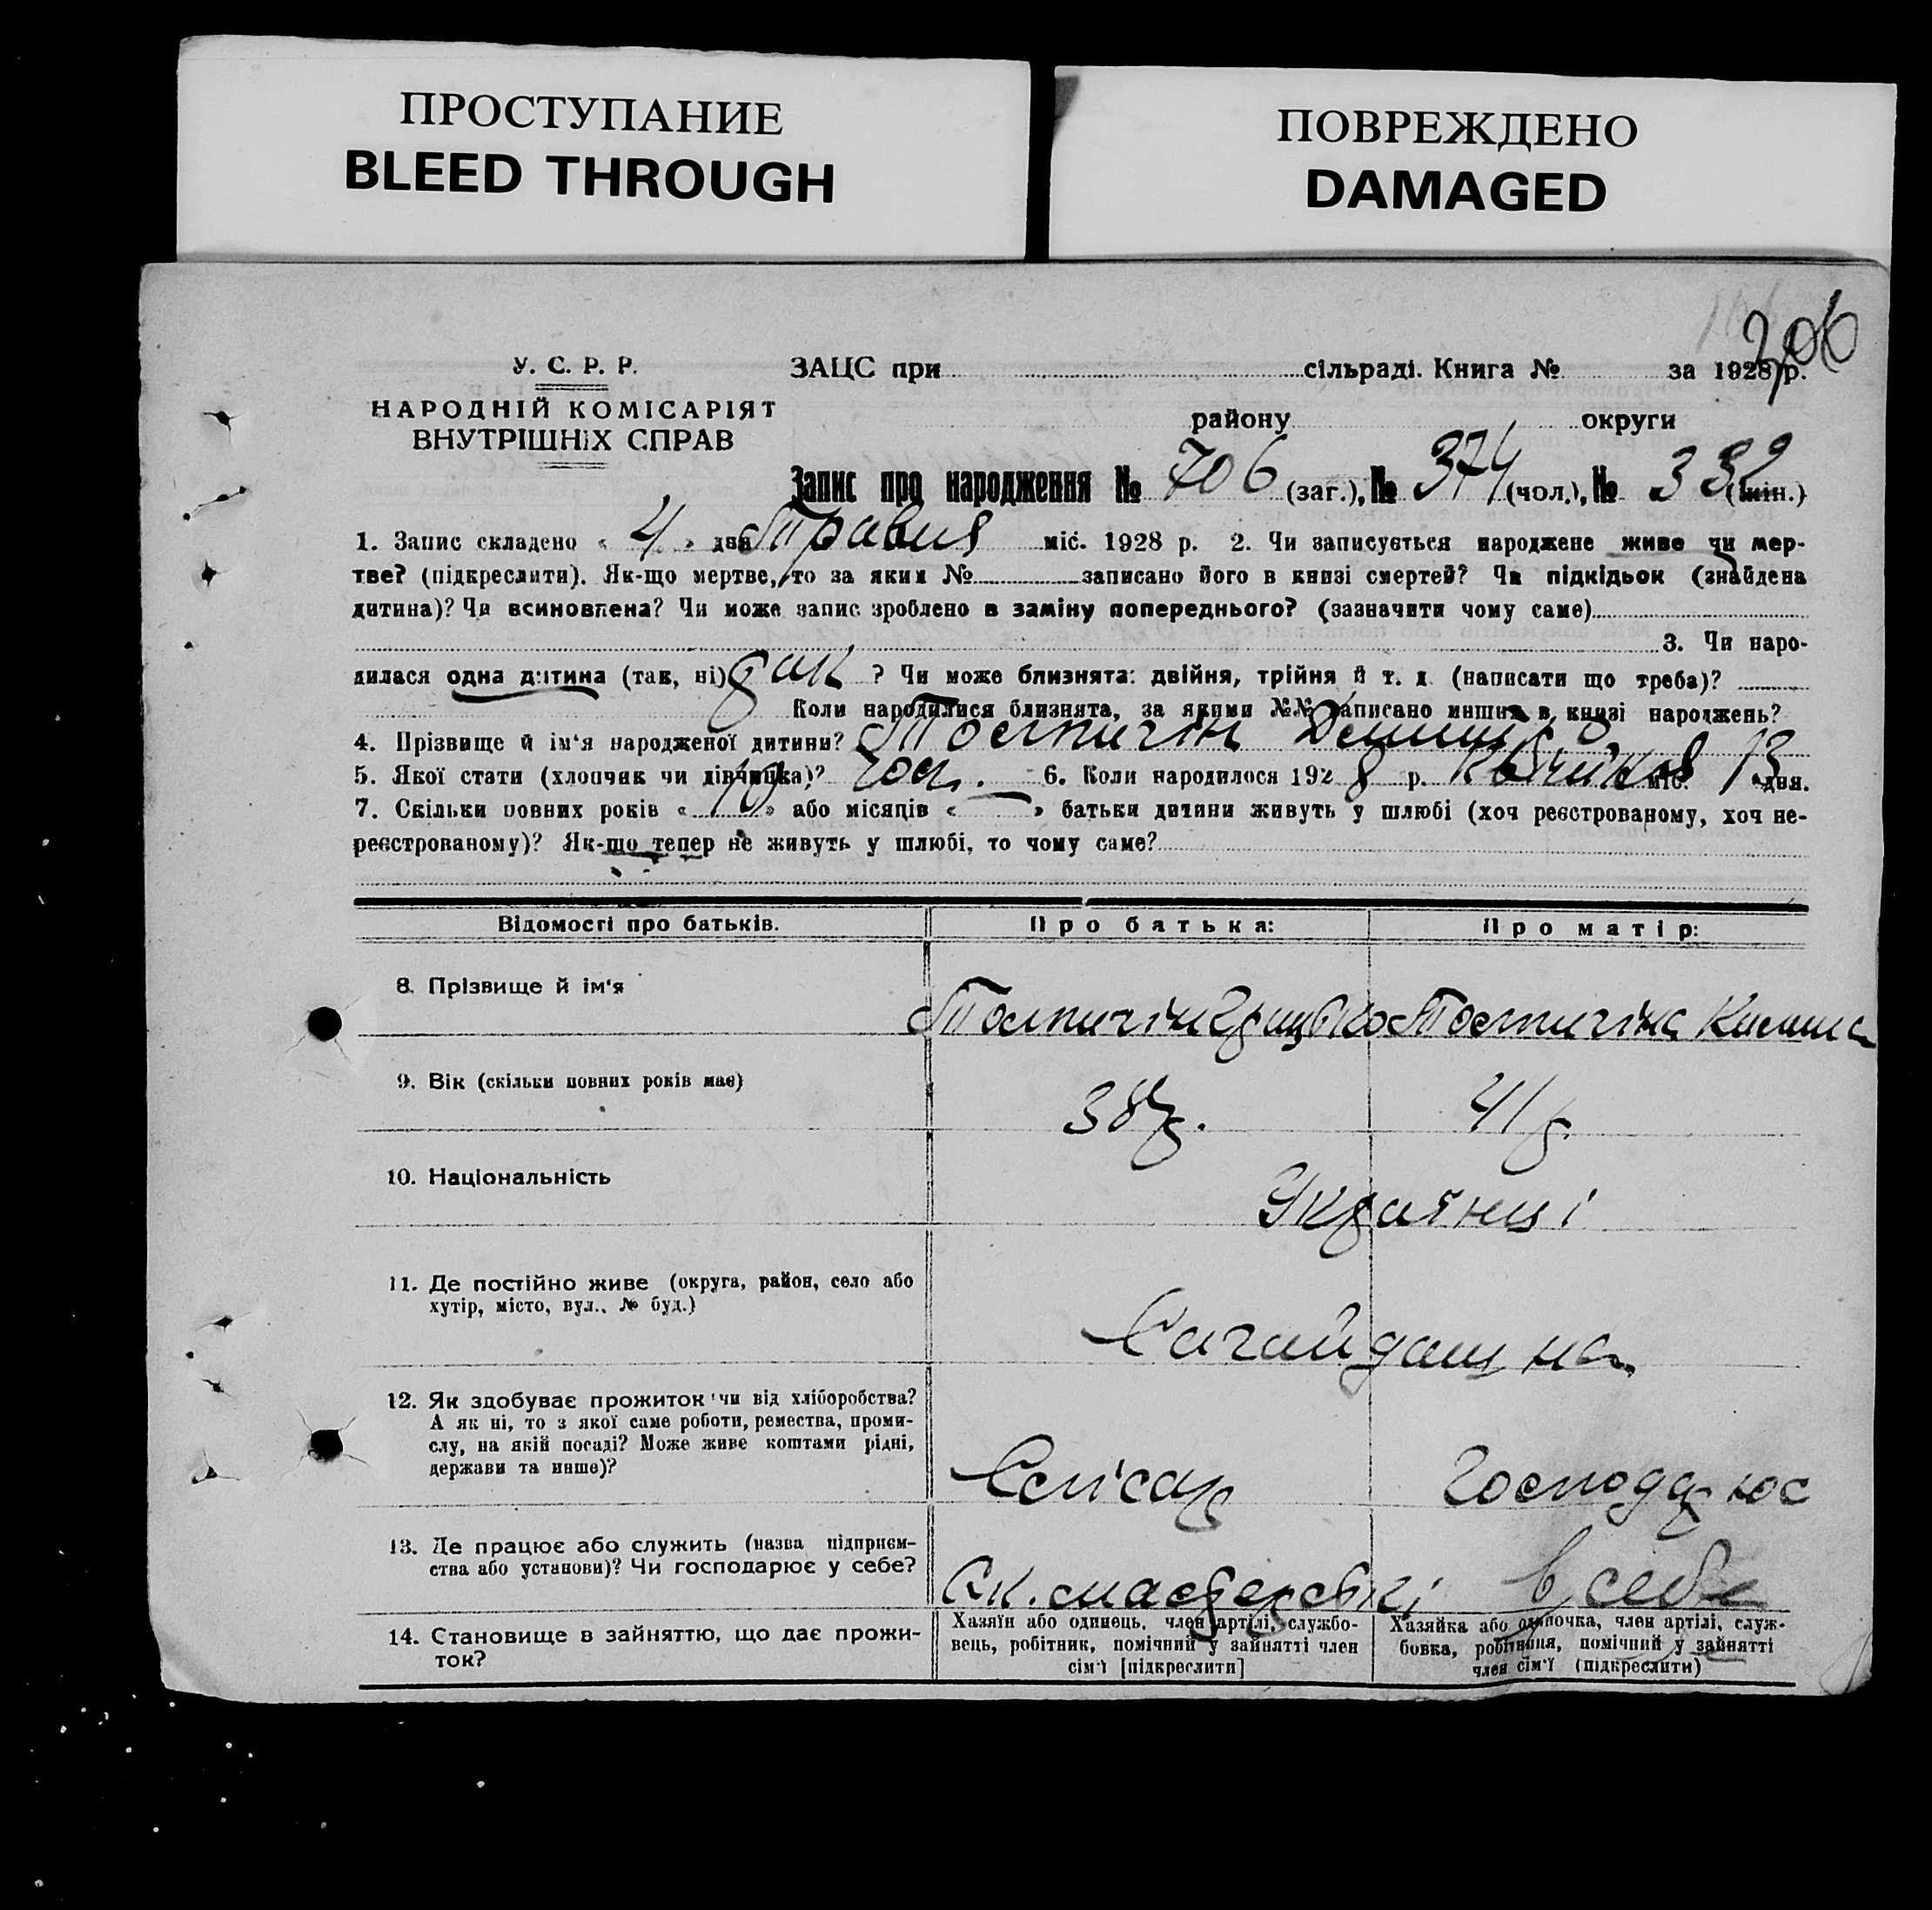 ПРОСТУПАНИЕ
BLEED THROUGH
ПОВРЕЖДЕНО
DAMAGED
206
У. С. Р. Р.
НАРОДНІЙ КОМІСАРІЯТ
ВНУТРІШНІХ СПРАВ
ЗАЦС при сільраді. Книга № за 1928 р.
району округи
Запис про народження № 706 (заг.), № 374 (чол.), № 332 (жін.)
1. Запис складено « 4 » дня Травня міс. 1928 р. 2. Чи записується народжене живе чи мер-
тве? (підкреслити). Як-що мертве, то за яким № записано його в книзі смертей? Чи підкідьок (знайдена
дитина)? Чи всиновлена? Чи може запис зроблено в заміну попереднього? (зазначити чому саме)
3. Чи наро-
дилася одна дитина (так, ні) так ? Чи може близнята: двійня, трійня й т. д. (написати що треба)?
Коли народилися близнята, за якими №№ записано инших в книзі народжень?
4. Прізвище й ім'я народженої дитини?
5. Якої стати (хлопчик чи дівчинка)? чол. 6. Коли народилося 1928 р. Квітня міс. 13 дня.
7. Скільки повних років « 10 » або місяців « — » батьки дитини живуть у шлюбі (хоч реєстрованому, хоч не-
реєстрованому)? Як-що тепер не живуть у шлюбі, то чому саме?
Відомості про батьків.
Про батька:
Про матір:
8. Прізвище й ім'я
Грицько
9. Вік (скільки повних років має)
38 р.
41 р.
10. Національність
Українці
11. Де постійно живе (округа, район, село або
хутір, місто, вул., № буд.)
Сагайдачна
12. Як здобуває прожиток чи від хліборобства?
А як ні, то з якої саме роботи, ремества, проми-
слу, на якій посаді? Може живе коштами рідні,
держави та инше)?
Слюсар
Господарює
13. Де працює або служить (назва підприєм-
ства або установи)? Чи господарює у себе?
майстерські
в себе
14. Становище в зайняттю, що дає прожи-
ток?
Хазяїн або одинець, член артілі, службо-
вець, робітник, помічний у зайнятті член
сім'ї [підкреслити]
Хазяйка або одиночка, член артілі, служ-
бовка, робітниця, помічний у зайнятті
член сім'ї (підкреслити)